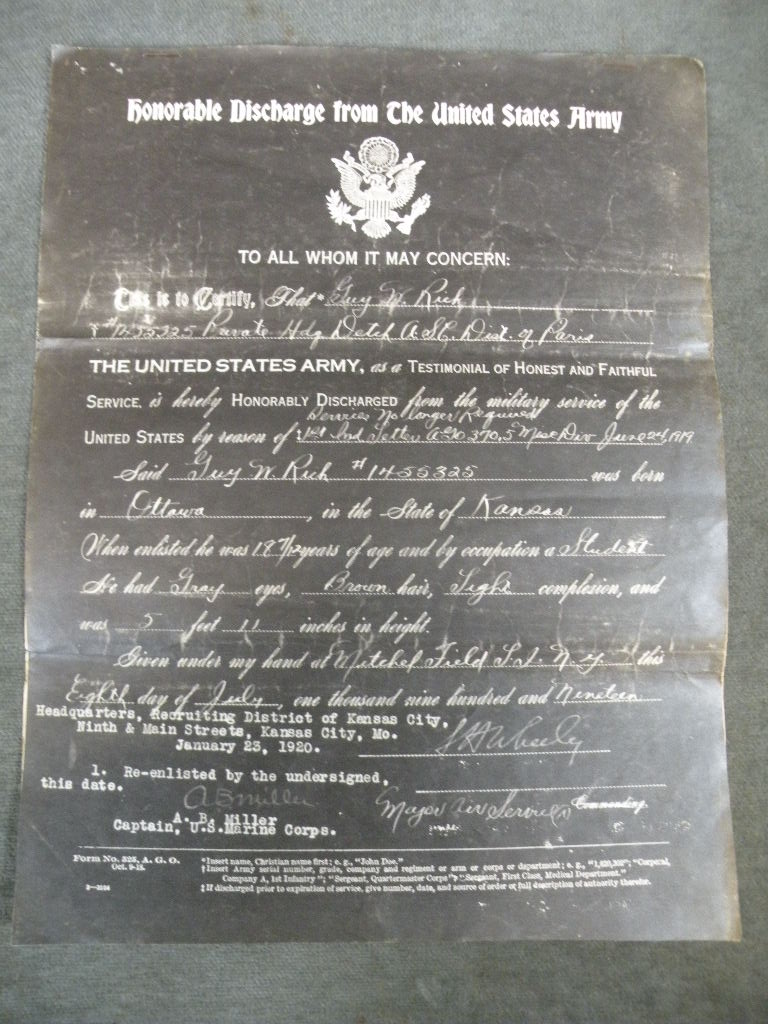 Honorable Discharge from The United States Army
TO ALL WHOM IT MAY CONCERN:
This is to Certify, That* Guy W. Rich
† #1455325 Private Hdq Detch A.S.C. Dist. of Paris
THE UNITED STATES ARMY, as a TESTIMONIAL OF HONEST AND FAITHFUL
SERVICE, is hereby HONORABLY DISCHARGED from the military service of the
Services No Longer Required
UNITED STATES by reason of ‡ 1st Ind Letter AGO 370.5 Misc Div June 24, 1919
Said Guy W. Rich #1455325 was born
in Ottawa, in the State of Kansas
When enlisted he was 18 7/12 years of age and by occupation a Student
He had Gray eyes, Brown hair, Light complexion, and
was 5 feet 11 inches in height.
Given under my hand at Mitchel Field L.I. N.Y. this
Eighth day of July, one thousand nine hundred and Nineteen
Headquarters, Recruiting District of Kansas City,
Ninth & Main Streets, Kansas City, Mo.
January 23, 1920.
1. Re-enlisted by the undersigned,
this date.
A B Miller
A. B. Miller
Captain, U.S. Marine Corps.
Major Air Service Commanding.
Form No. 525, A. G. O.
Oct. 9-18.
*Insert name, Christian name first; e. g., "John Doe."
†Insert Army serial number, grade, company and regiment or arm or corps or department; e. g., "1,620,302"; "Corporal,
Company A, 1st Infantry"; "Sergeant, Quartermaster Corps"; "Sergeant, First Class, Medical Department."
‡If discharged prior to expiration of service, give number, date, and source of order or full description of authority therefor.